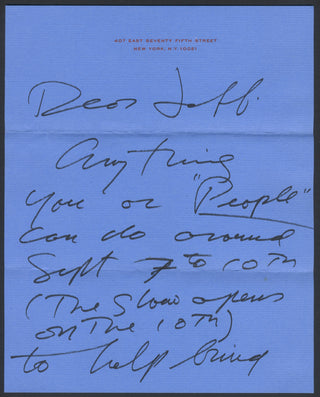 407 EAST SEVENTY FIFTH STREET
NEW YORK, N.Y. 10021
Dear Jeff.
Anything
you or "People"
can do around
Sept 7 to 10TH
(The Show opens
on The 10TH)
to help bring